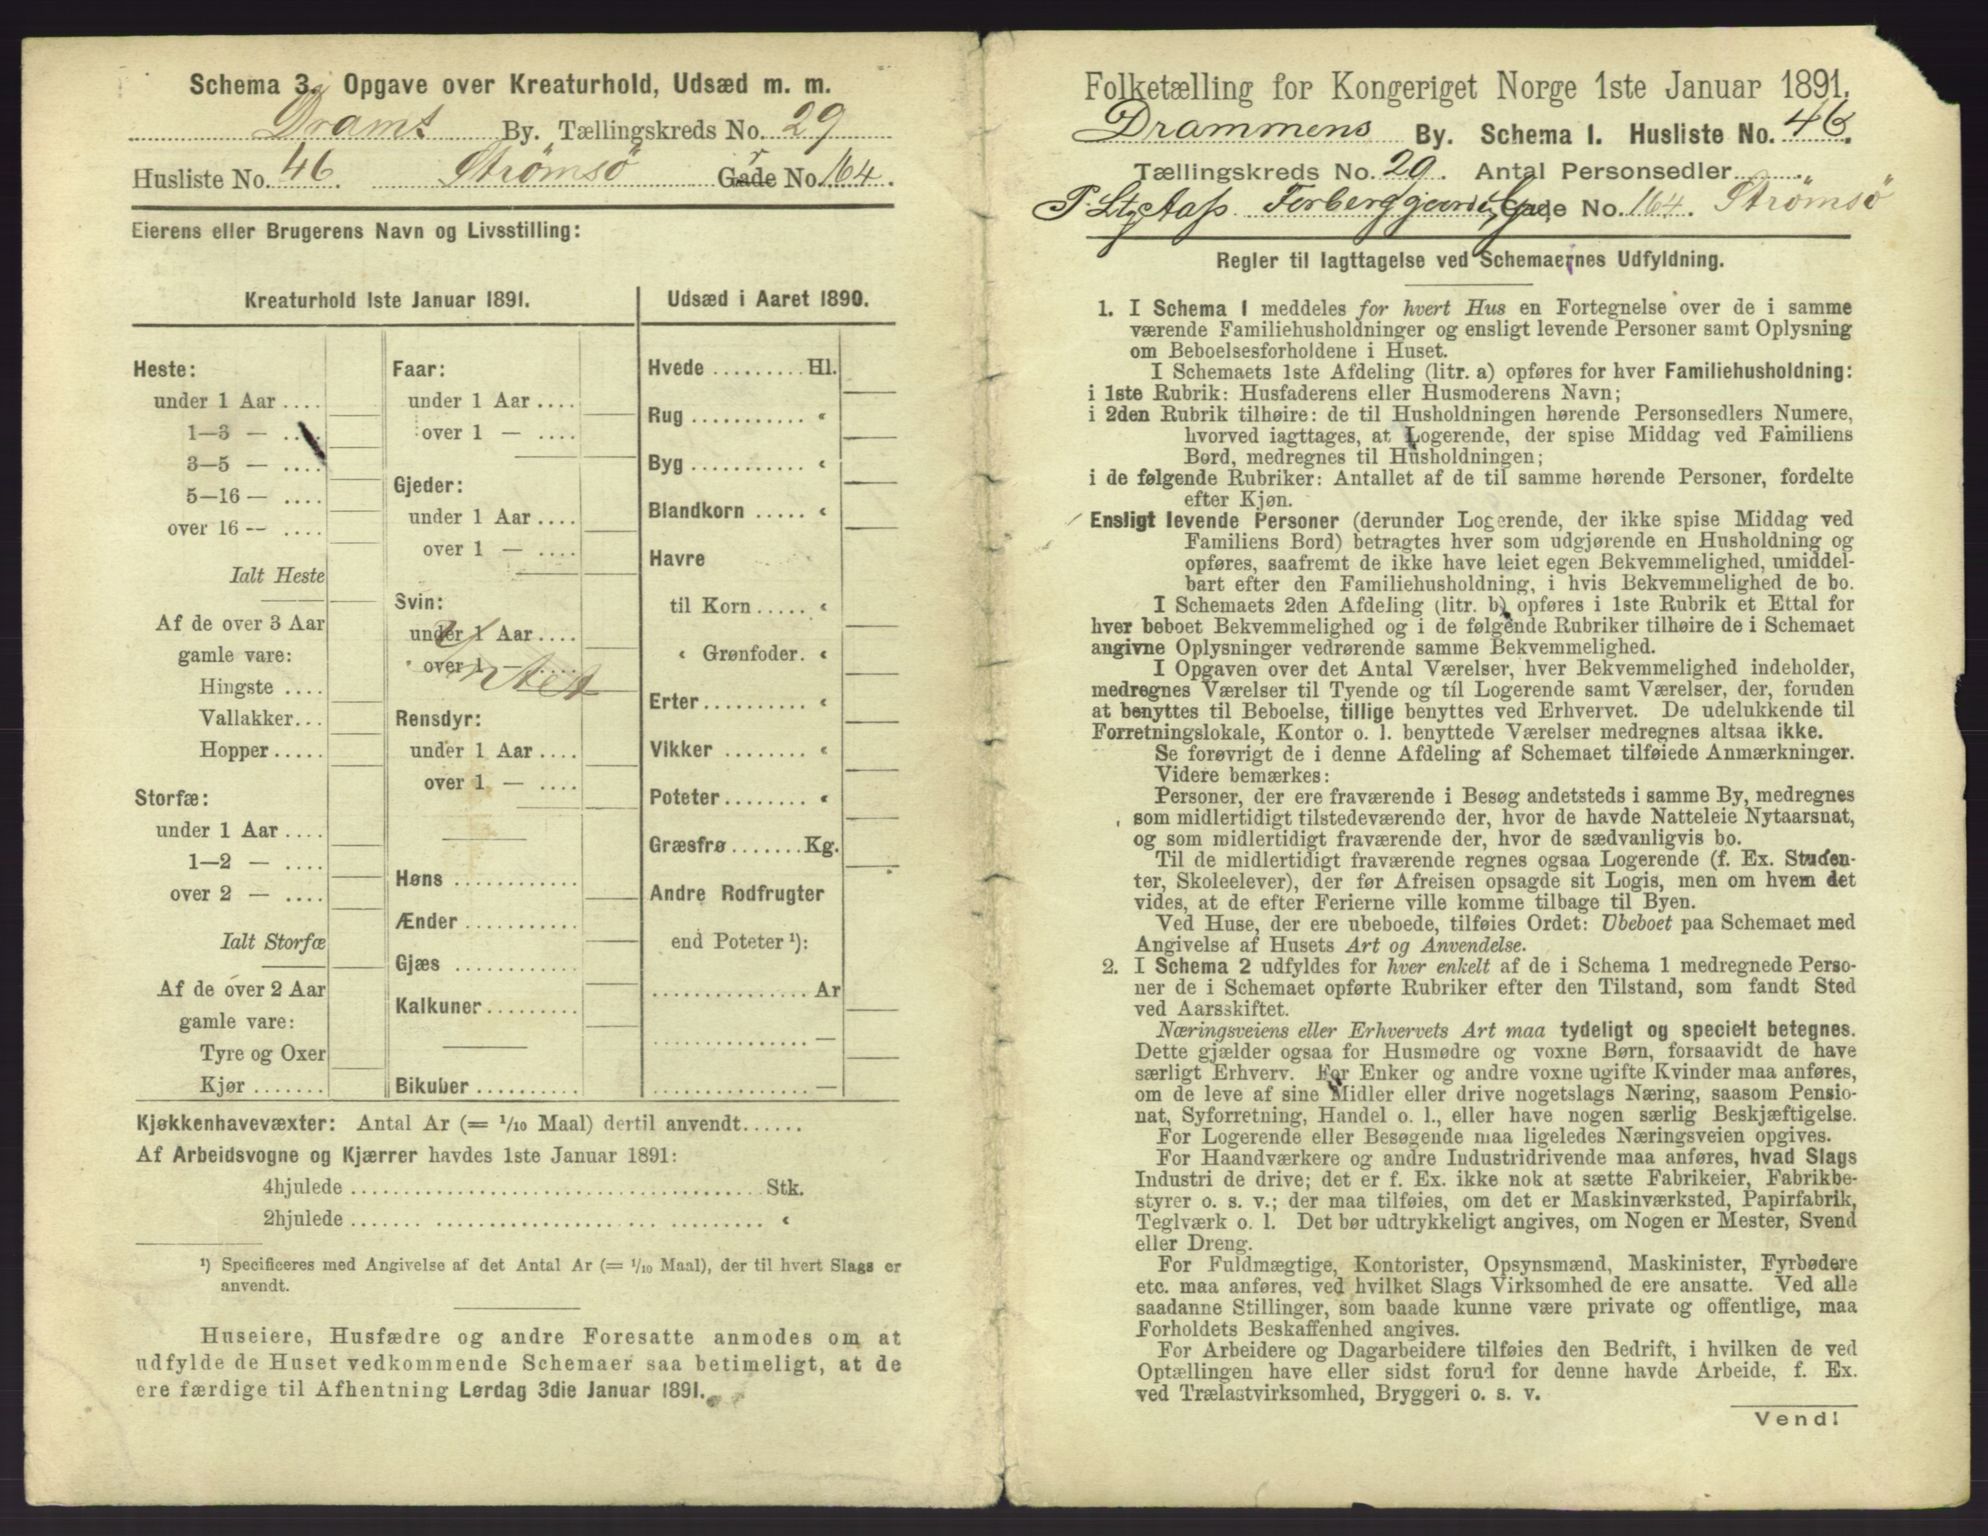 Schema 3. Opgave over Kreaturhold, Udsæd m. m.
Dramt By. Tællingskreds No. 29
Husliste No. 46. Strømsö Gade No. 164.
Eierens eller Brugerens Navn og Livsstilling:
Kreaturhold 1ste Januar 1891.
Heste:
under 1 Aar ....
1—3 — ....
3—5 — ....
5—16 — ....
over 16 — ....
Ialt Heste
Af de over 3 Aar
gamle vare:
Hingste ....
Vallakker...
Hopper .....
Storfæ:
under 1 Aar ....
1—2 — ....
over 2 — ....
Ialt Storfæ
Af de over 2 Aar
gamle vare:
Tyre og Oxer
Kjør .......
Faar:
under 1 Aar ....
over 1 — ....
Gjeder:
under 1 Aar ....
over 1 — ....
Svin:
under 1 Aar ....
over 1 — ....
Intet
Rensdyr:
under 1 Aar ....
over 1 — ....
Høns ............
Ænder ...........
Gjæs ............
Kalkuner.........
Bikuber ..........
Udsæd i Aaret 1890.
Hvede ......... Hl.
Rug ........... «
Byg ........... «
Blandkorn ..... «
Havre
til Korn ..... «
« Grønfoder. «
Erter.......... «
Vikker ........ «
Poteter........ «
Græsfrø ....... Kg.
Andre Rodfrugter
end Poteter ¹):
............... Ar
............... —
............... —
Kjøkkenhavevæxter: Antal Ar (= 1/10 Maal) dertil anvendt......
Af Arbeidsvogne og Kjærrer havdes 1ste Januar 1891:
4hjulede ....................................... Stk.
2hjulede ....................................... «
¹) Specificeres med Angivelse af det Antal Ar (= 1/10 Maal), der til hvert Slags er
anvendt.
Huseiere, Husfædre og andre Foresatte anmodes om at
udfylde de Huset vedkommende Schemaer saa betimeligt, at de
ere færdige til Afhentning Lørdag 3die Januar 1891.
Folketælling for Kongeriget Norge 1ste Januar 1891.
Drammens By. Schema 1. Husliste No. 46.
Tællingskreds No. 29. Antal Personsedler........
Gade No. 164. Strømsö
Regler til Iagttagelse ved Schemaernes Udfyldning.
1. I Schema 1 meddeles for hvert Hus en Fortegnelse over de i samme
værende Familiehusholdninger og ensligt levende Personer samt Oplysning
om Beboelsesforholdene i Huset.
I Schemaets 1ste Afdeling (litr. a) opføres for hver Familiehusholdning:
i 1ste Rubrik: Husfaderens eller Husmoderens Navn;
i 2den Rubrik tilhøire: de til Husholdningen hørende Personsedlers Numere,
hvorved iagttages, at Logerende, der spise Middag ved Familiens
Bord, medregnes til Husholdningen;
i de følgende Rubriker: Antallet af de til samme hørende Personer, fordelte
efter Kjøn.
Ensligt levende Personer (derunder Logerende, der ikke spise Middag ved
Familiens Bord) betragtes hver som udgjørende en Husholdning og
opføres, saafremt de ikke have leiet egen Bekvemmelighed, umiddel-
bart efter den Familiehusholdning, i hvis Bekvemmelighed de bo.
I Schemaets 2den Afdeling (litr. b) opføres i 1ste Rubrik et Ettal for
hver beboet Bekvemmelighed og i de følgende Rubriker tilhøire de i Schemaet
angivne Oplysninger vedrørende samme Bekvemmelighed.
I Opgaven over det Antal Værelser, hver Bekvemmelighed indeholder,
medregnes Værelser til Tyende og til Logerende samt Værelser, der, foruden
at benyttes til Beboelse, tillige benyttes ved Erhvervet. De udelukkende til
Forretningslokale, Kontor o. l. benyttede Værelser medregnes altsaa ikke.
Se forøvrigt de i denne Afdeling af Schemaet tilføiede Anmærkninger.
Videre bemærkes:
Personer, der ere fraværende i Besøg andetsteds i samme By, medregnes
som midlertidigt tilstedeværende der, hvor de havde Natteleie Nytaarsnat,
og som midlertidigt fraværende der, hvor de sædvanligvis bo.
Til de midlertidigt fraværende regnes ogsaa Logerende (f. Ex. Studen-
ter, Skoleelever), der før Afreisen opsagde sit Logis, men om hvem det
vides, at de efter Ferierne ville komme tilbage til Byen.
Ved Huse, der ere ubeboede, tilføies Ordet: Ubeboet paa Schemaet med
Angivelse af Husets Art og Anvendelse.
2. I Schema 2 udfyldes for hver enkelt af de i Schema 1 medregnede Perso-
ner de i Schemaet opførte Rubriker efter den Tilstand, som fandt Sted
ved Aarsskiftet.
Næringsveiens eller Erhvervets Art maa tydeligt og specielt betegnes.
Dette gjælder ogsaa for Husmødre og voxne Børn, forsaavidt de have
særligt Erhverv. For Enker og andre voxne ugifte Kvinder maa anføres,
om de leve af sine Midler eller drive nogetslags Næring, saasom Pensio-
nat, Syforretning, Handel o. l., eller have nogen særlig Beskjæftigelse.
For Logerende eller Besøgende maa ligeledes Næringsveien opgives.
For Haandværkere og andre Industridrivende maa anføres, hvad Slags
Industri de drive; det er f. Ex. ikke nok at sætte Fabrikeier, Fabrikbe-
styrer o. s. v.; der maa tilføies, om det er Maskinværksted, Papirfabrik,
Teglværk o. l. Det bør udtrykkeligt angives, om Nogen er Mester, Svend
eller Dreng.
For Fuldmægtige, Kontorister, Opsynsmænd, Maskinister, Fyrbødere
etc. maa anføres, ved hvilket Slags Virksomhed de ere ansatte. Ved alle
saadanne Stillinger, som baade kunne være private og offentlige, maa
Forholdets Beskaffenhed angives.
For Arbeidere og Dagarbeidere tilføies den Bedrift, i hvilken de ved
Optællingen have eller sidst forud for denne havde Arbeide, f. Ex.
ved Trælastvirksomhed, Bryggeri o. s. v.
Vend!